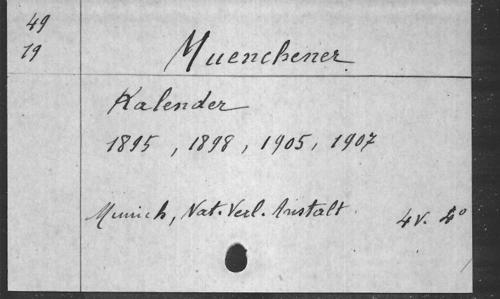 49
19
Muenchener
Kalender
1895, 1898, 1905, 1907
Munich, Nat. Verl. Anstalt 4v. 4°